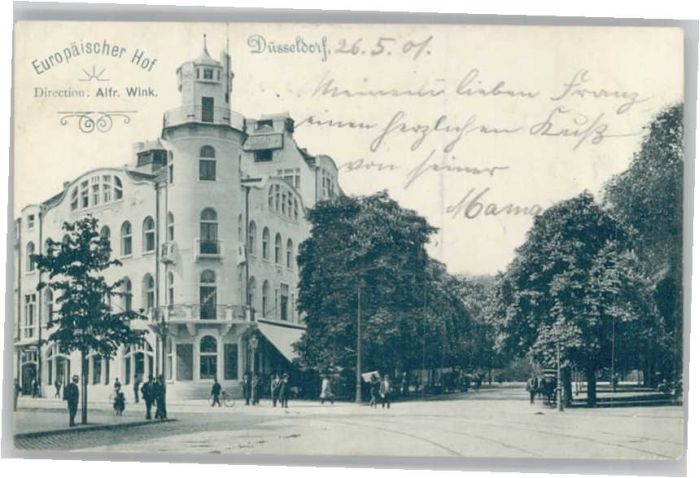 Europäischer Hof
Direction: Alfr. Wink.
Düsseldorf, 26.5.01.
Meinem lieben Franz
einen herzlichen Kuß
von seiner
Mama